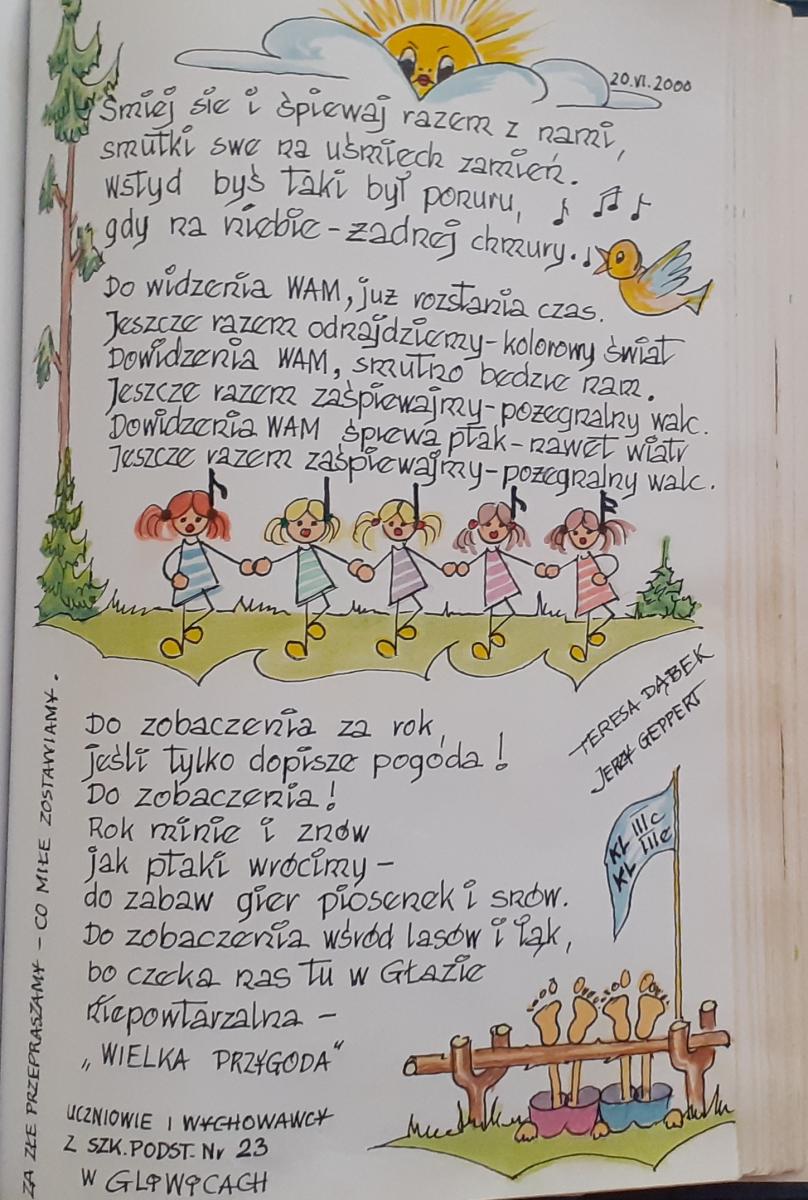 20.VI.2000
Śmiej się i śpiewaj razem z nami,
smutki swe na uśmiech zamień.
wstyd byś taki był ponury,
gdy na niebie - żadnej chmury.
Do widzenia WAM, już rozstania czas.
Jeszcze razem odnajdziemy - kolorowy świat
Dowidzenia WAM, smutno będzie nam.
Jeszcze razem zaśpiewajmy - pożegnalny walc.
Dowidzenia WAM śpiewa ptak - nawet wiatr
Jeszcze razem zaśpiewajmy - pożegnalny walc.
TERESA DĄBEK
JERZY GEPPERT
Do zobaczenia za rok,
jeśli tylko dopisze pogoda!
Do zobaczenia!
Rok minie i znów
jak ptaki wrócimy -
do zabaw gier piosenek i snów.
Do zobaczenia wśród lasów i łąk,
bo czeka nas tu w GŁAZIE
niepowtarzalna -
„WIELKA PRZYGODA"
KL IIIc
KL IIIe
UCZNIOWIE I WYCHOWAWCY
Z SZK. PODST. Nr 23
W GLIWICACH
ZA ZŁE PRZEPRASZAMY - CO MIŁE ZOSTAWIAMY.